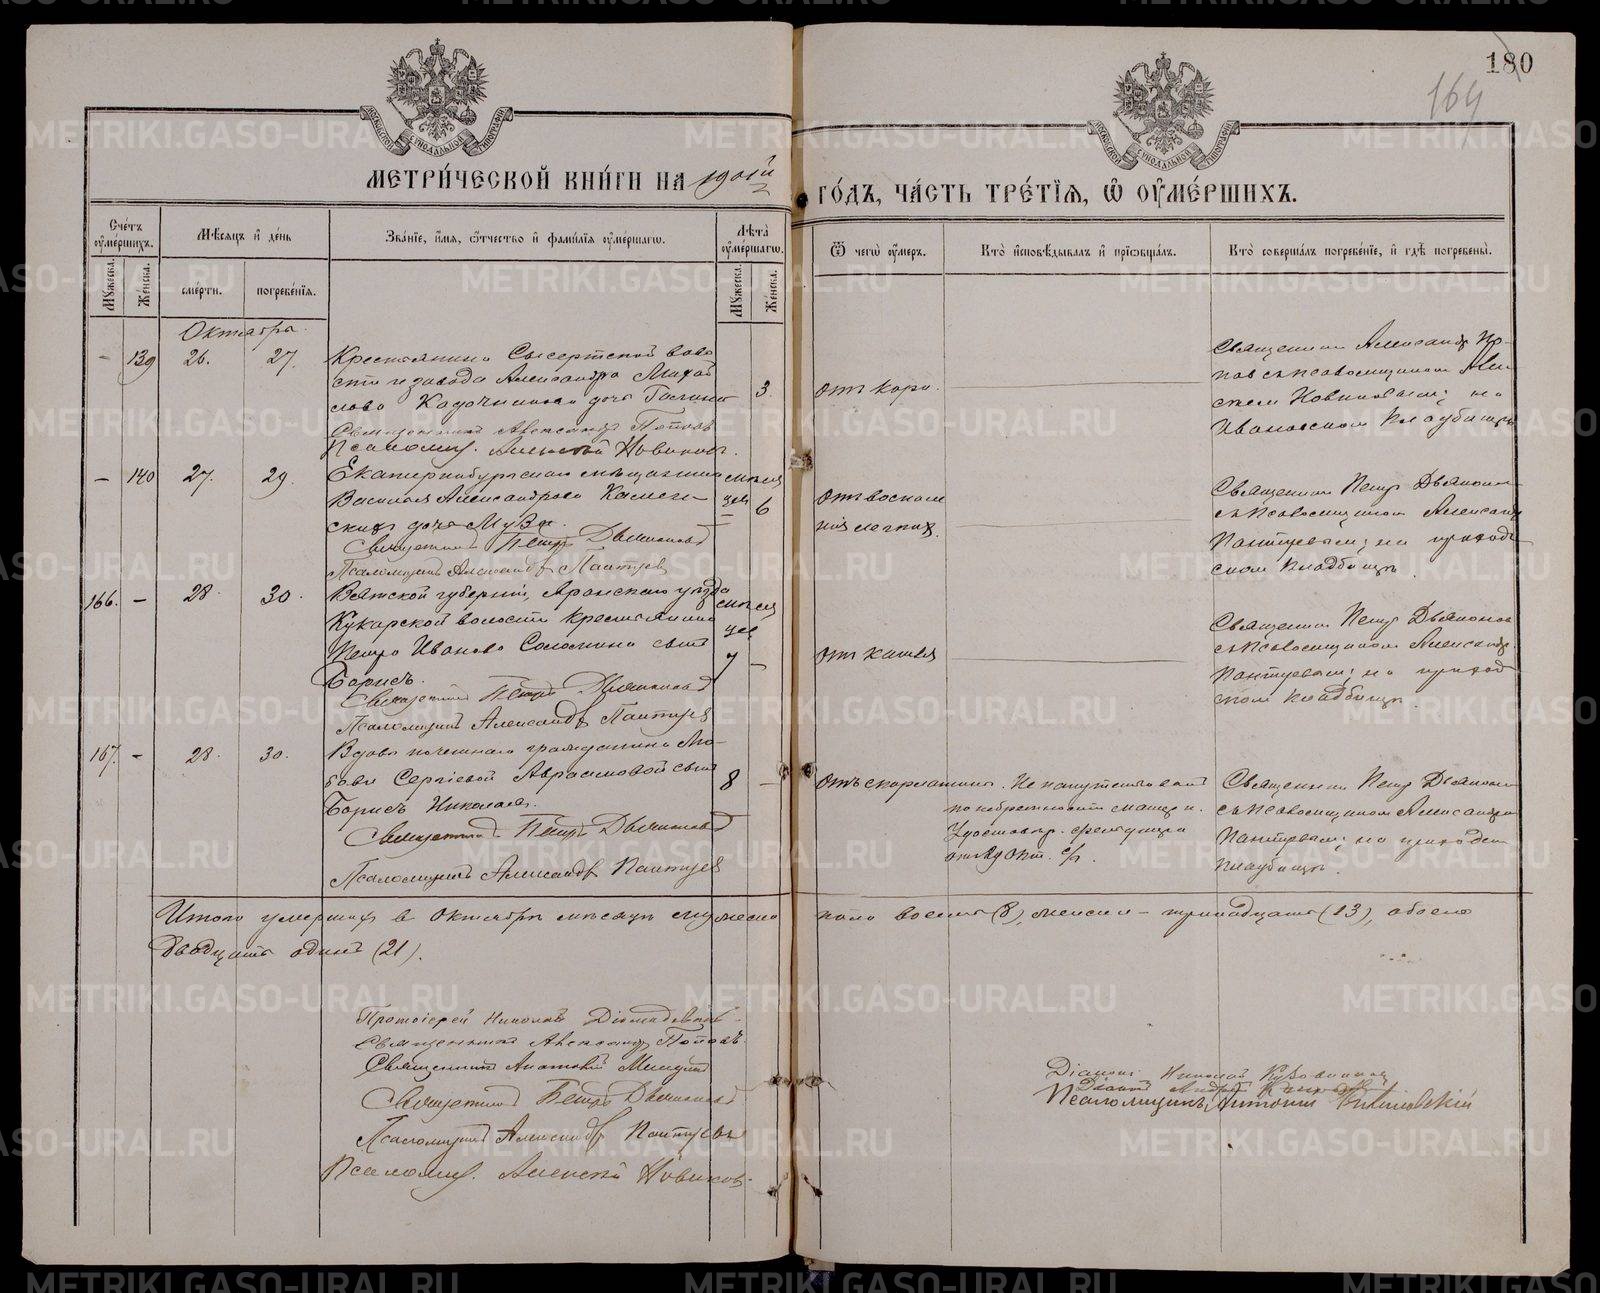 180
164
МОСКОВСКОЙ СѴНОДАЛЬНОЙ ТИПОГРАФІИ
МОСКОВСКОЙ СѴНОДАЛЬНОЙ ТИПОГРАФІИ
МЕТРИ́ЧЕСКОЙ КНИ́ГИ НА 1901й ГО́ДЪ, ЧА́СТЬ ТРЕ́ТІѦ, Ѽ ОУ҆МЕ́РШИХЪ.
Сче́тъ оу҆ме́ршихъ.
Мꙋ́жеска.
Же́нска.
Мѣ́сѧцъ и҆ де́нь
сме́рти.
погребе́нїѧ.
Зва́нїе, и҆́мѧ, ѻ҆́тчество и҆ фами́лїѧ оу҆ме́ршагѡ.
Лѣ́та оу҆ме́ршагѡ.
Мꙋ́жеска.
Же́нска.
Ѿ чегѡ̀ оу҆́меръ.
Кто̀ и҆сповѣ́дывалъ и҆ прїѡбща́лъ.
Кто̀ соверша́лъ погребе́нїе, и҆ гдѣ̀ погребены̀.
Октября.
- 139 26. 27.
Крестьянина Сысертской воло
сти и завода Александра Михай
лова Кадочникова дочь
Священникъ Александръ Поповъ
Псаломщ. Алексѣй Новиковъ.
3.
отъ кори.
Священникъ Александр По-
повъ съ псаломщикомъ Але
ксѣем Новиковым; на
Ивановском кладбищѣ
- 140 27. 29.
Екатеринбургскаго мѣщанина
Василія Александрова Каменс-
скихъ дочь Муза.
Священникъ Петръ Дьяконовъ
Псаломщикъ Александръ Пантуевъ
мѣся
цев 6
отъ воспале
нія легких.
Священник Петр Дьяконов
съ псаломщиком Александ
Пантуевым; на приход
ском кладбищѣ.
166. - 28. 30.
Вятской губерніи, Яранскаго уѣзда
Кукарской волости крестьянина
Петра Иванова Соломина сынъ
Борисъ.
Священникъ Петръ Дьяконовъ
Псаломщикъ Александръ Пантуевъ
мѣся
цев
7 -
отъ кашля
Священник Петр Дьяконов
съ псаломщиком Александр.
Пантуевым; на приход
ском кладбищѣ.
167. - 28. 30.
Вдовы почетнаго гражданина Лю-
бови Сергіевой Аврамовой сынъ
Борисъ Николаев.
Священникъ Петръ Дьяконовъ
Псаломщикъ Александръ Пантуевъ
8 -
Отъ скарлатины.
Не напутствованъ
по небрежности матери.
Священник Петр Дьяконов
съ псаломщиком Александром
Пантуевым; на приходском
кладбищѣ.
Итого умерших в Октябрѣ мѣсяцѣ мужеска пола восемь (8), женска - тринадцать (13), обоего
двадцать один (21).
Протоіерей Николай
Священникъ Александръ Поповъ.
Священникъ Анатолій
Священникъ Петръ Дьяконовъ
Псаломщикъ Александръ Пантуевъ
Псаломщ. Алексѣй Новиков.
Діаконъ Николай
Діаконъ Андрей
Псаломщикъ Антоній
METRIKI.GASO-URAL.RU